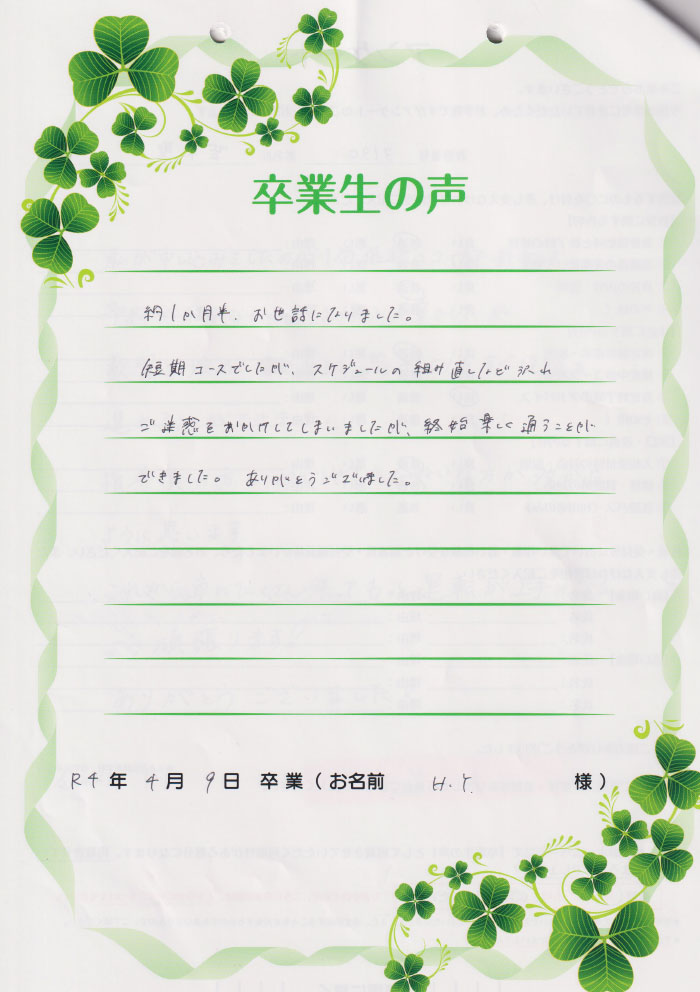 卒業生の声
約1か月半、お世話になりました。
短期コースでしたが、スケジュールの組み直しなど沢山
ご迷惑をおかけしてしまいましたが、終始楽しく通うことが
できました。 ありがとうございました。
R4年 4月 9日 卒業(お名前 H.Y. 様)